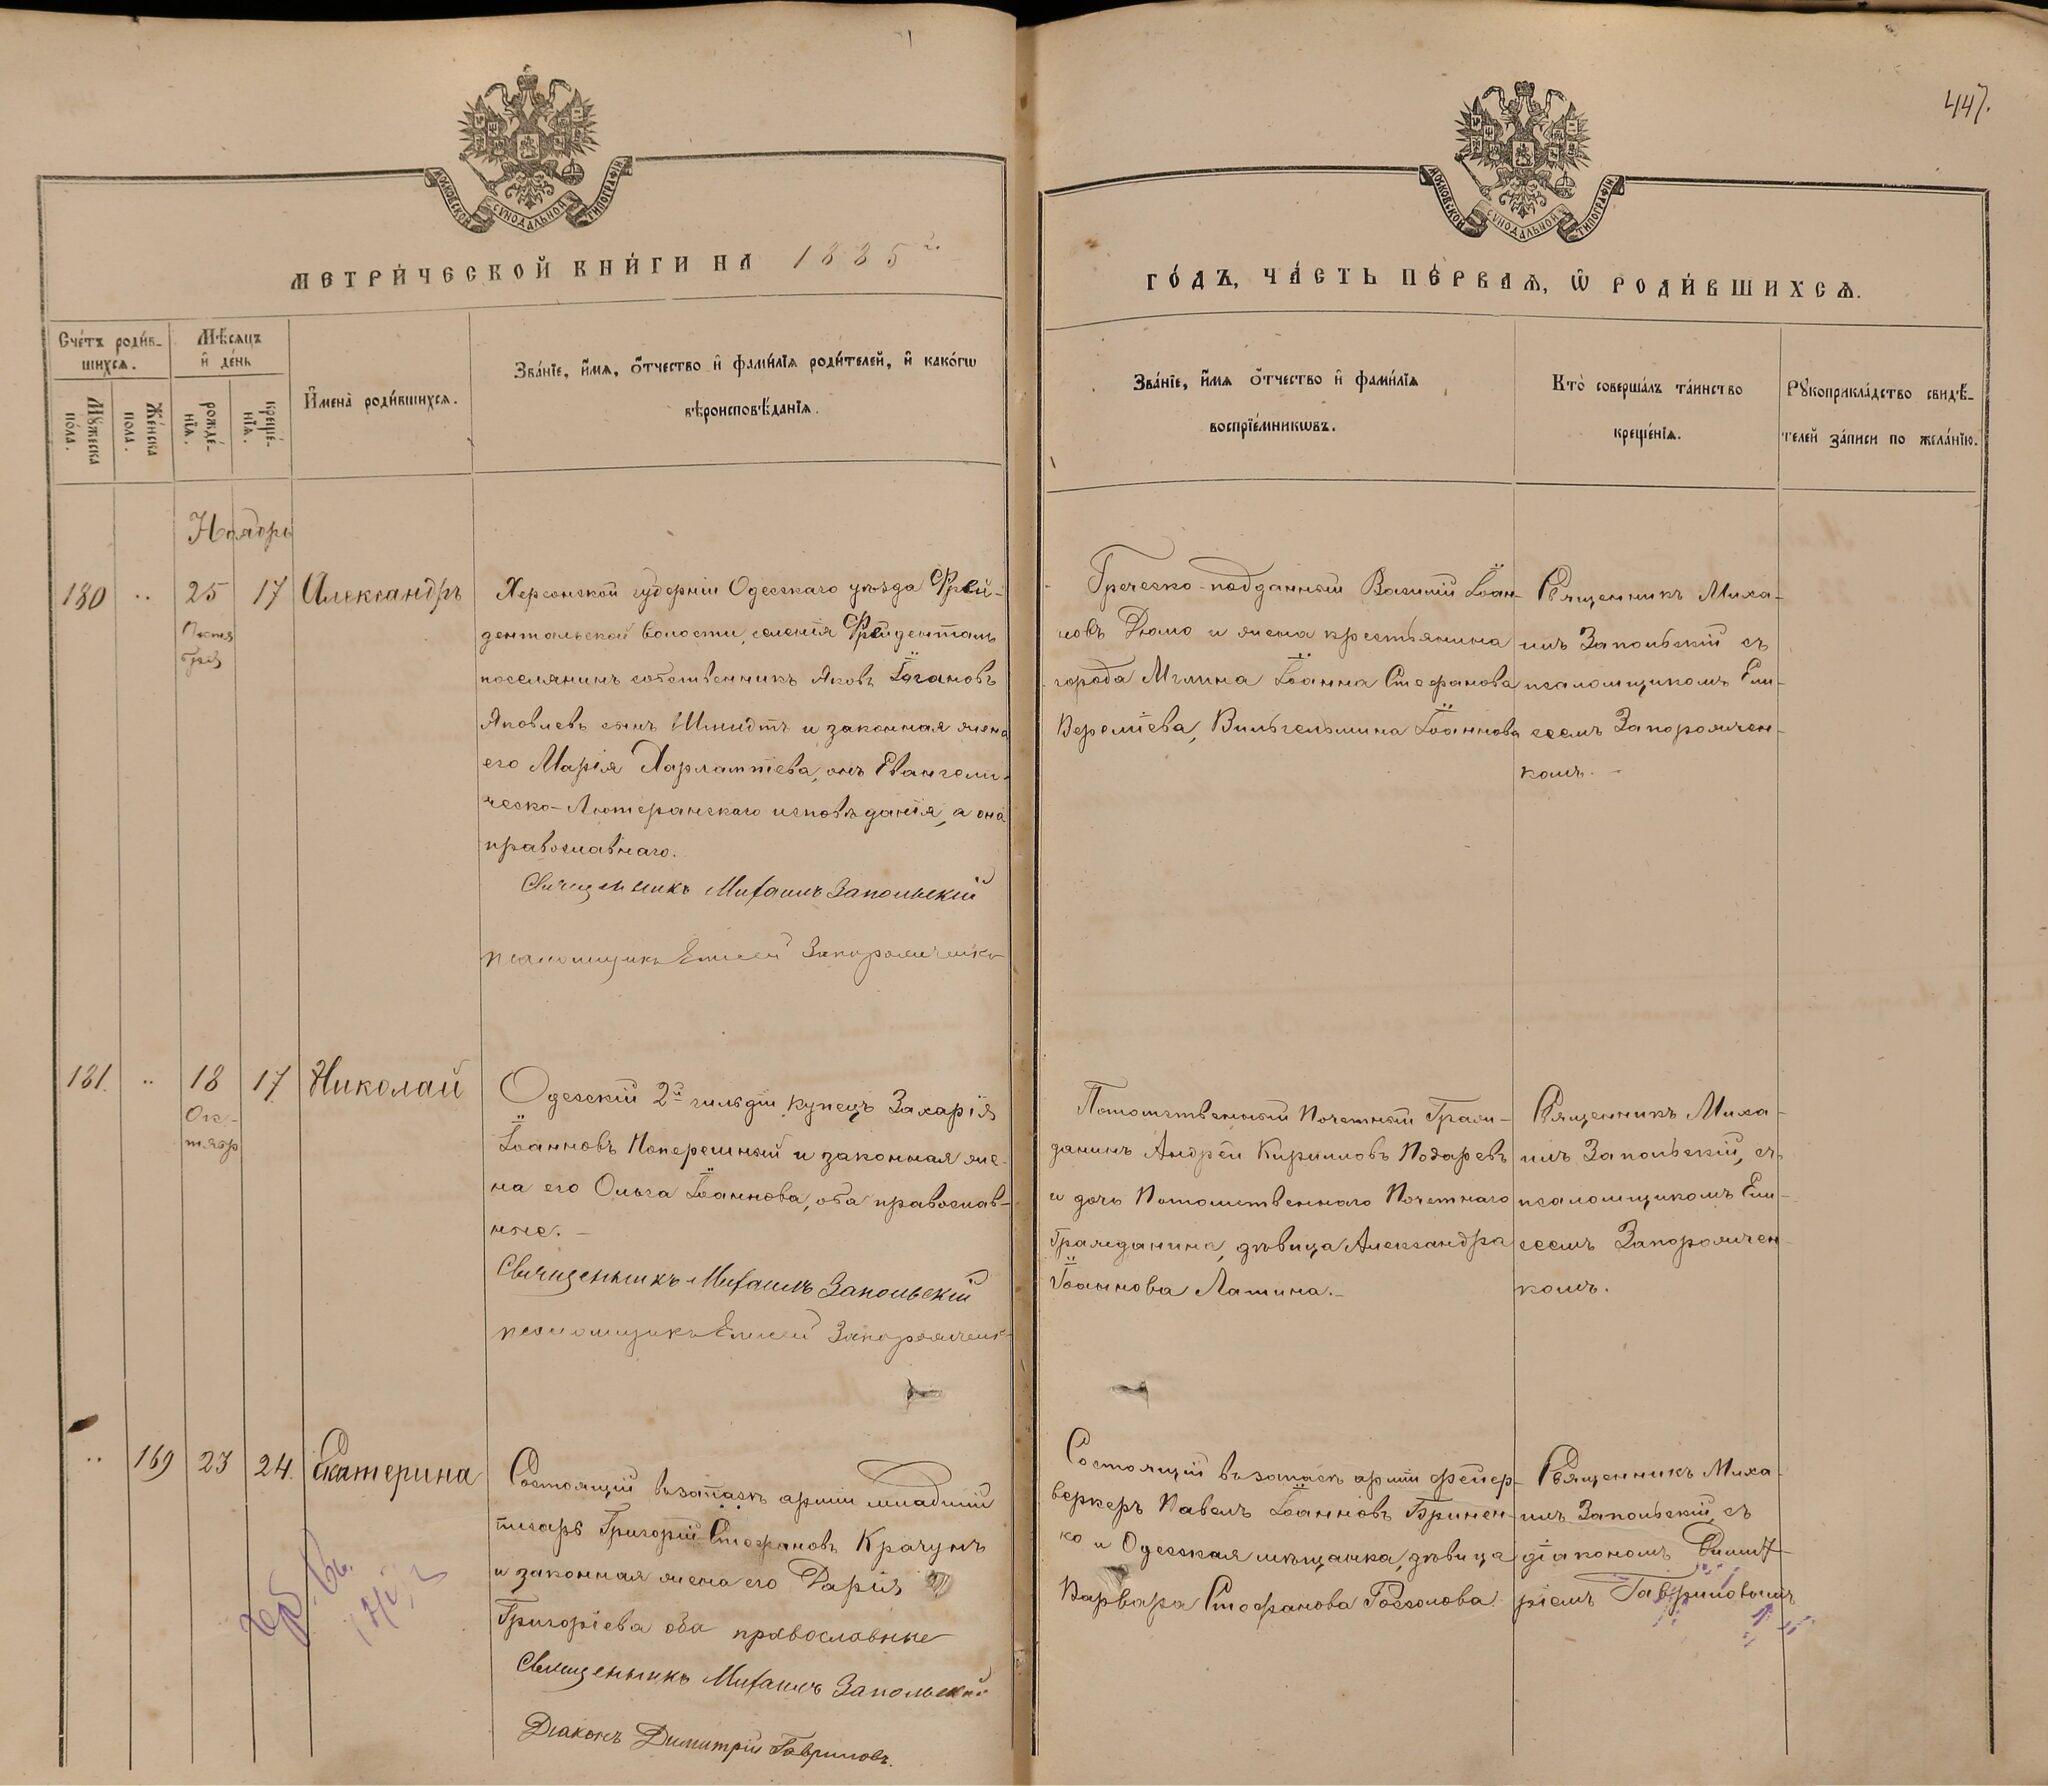 447.
МОСКОВСКОЙ СѴНОДАЛЬНОЙ ТИПОГРАФІИ.
МОСКОВСКОЙ СѴНОДАЛЬНОЙ ТИПОГРАФІИ.
МЕТРИ́ЧЕСКОЙ КНИ́ГИ НА 1885 г.
ГО́ДЪ, ЧА́СТЬ ПЕ́РВАѦ, Ѡ РОДИ́ВШИХСѦ.
Сче́тъ роди́в-
шихсѧ.
Мꙋжеска
по́ла.
Же́нска
пола.
Мѣ́сѧцъ
и҆ де́нь
рожде́-
нїѧ.
креще́-
нїѧ.
И҆мена̀ роди́вшихсѧ.
Зва́нїе, и҆́мѧ, ѻ҆́тчество и҆ фами́лїѧ роди́телей, и҆ како́гѡ
вѣроисповѣ́данїѧ.
Зва́нїе, и҆́мѧ ѻ҆́тчество и҆ фами́лїѧ
воспрїе́мникѡвъ.
Кто̀ соверша́лъ та́инство
креще́нїѧ.
Рꙋкоприкла́дство свидѣ́-
телей за́писи по жела́нїю.
Ноябрь
180 .. 25 17 Александръ
Октя
бря
Херсонской губерніи Одесскаго уѣзда Фрей-
дентальской волости, селенія Фрейденталь
поселянинъ собственникъ Яковъ Іогановъ
Яковлевъ сынъ Шмидтъ и законная жена
его Марія Харлампіева, онъ Евангели-
ческо-Лютеранскаго исповѣданія, а она
православнаго.
Священникъ Михаилъ Запольскій
псаломщикъ Елисей Запорожченко
Греческо-подданный Василій Іоан-
новъ Дюмо и жена крестьянина
города Мглина Іоанна Стефанова
Веремѣева, Вильгельмина Іоаннова
Священникъ Миха-
илъ Запольскій съ
псаломщикомъ Ели-
сеемъ Запорожчен-
комъ.
181. .. 18 17 Николай
Ок-
тябр
Одесскій 2й гильдіи купецъ Захарія
Іоанновъ Поперешный и законная же-
на его Ольга Іоаннова, оба православ-
ные.
Священникъ Михаилъ Запольскій
псаломщикъ Елисей Запорожченк
Потомственный Почетный Граж-
данинъ Андрей Кирилловъ Посаревъ
и дочь Потомственнаго Почетнаго
Гражданина, дѣвица Александра
Іоаннова Лашина.
Священникъ Миха-
илъ Запольскій, съ
псаломщикомъ Ели-
сеемъ Запорожчен-
комъ.
.. 169 23 24. Екатерина
Состоящій въ запасѣ арміи младшій
писарь Григорій Стефановъ Крачунъ
и законная жена его Дарія
Григоріева оба православные
Священникъ Михаилъ Запольскій
Діаконъ Димитрій Гавриловъ.
Состоящій въ запасѣ арміи фейер-
веркеръ Павелъ Іоанновъ Бринен-
ко и Одесская мѣщанка, дѣвица
Варвара Стефанова
Священникъ Миха-
илъ Запольскій, съ
діакономъ Димит-
ріемъ Гавриловымъ